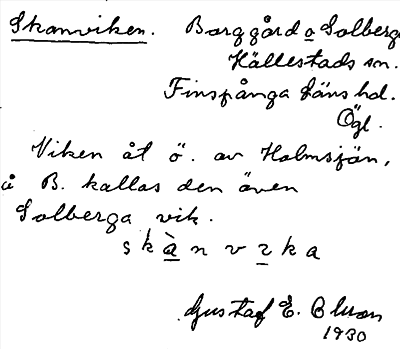 Skanviken. Borggård o Solberga
Hällestads sn.
Finspånga läns hd.
Ögl.
Viken åt ö. av Holmsjön,
å B. kallas den även
Solberga vik.
skànvıka
Gustaf E. Blman
1930